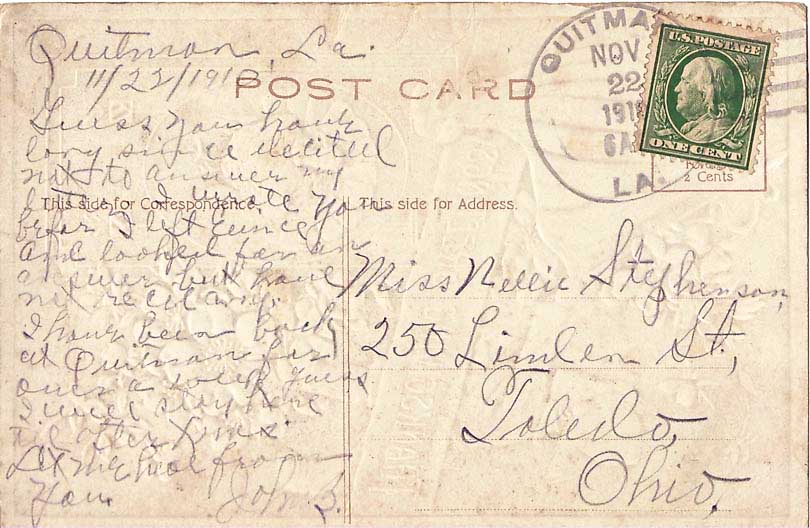 Quitman, La.
11/22/191
POST CARD
Guess you have
long since decided
not to answer my
letter. I wrote you
before I left Eunice
and looked for an
answer but have
not rec'd any.
I have been back
at Quitman for
over a week. Guess
I will stay here
til after Xmas.
Let me hear from
you.
John S.
This side for Correspondence.
This side for Address.
QUITMAN
NOV
22
191
6A
LA.
U.S. POSTAGE
ONE CENT
2 Cents
Miss Nellie Stephenson,
250 Linden St,
Toledo,
Ohio,